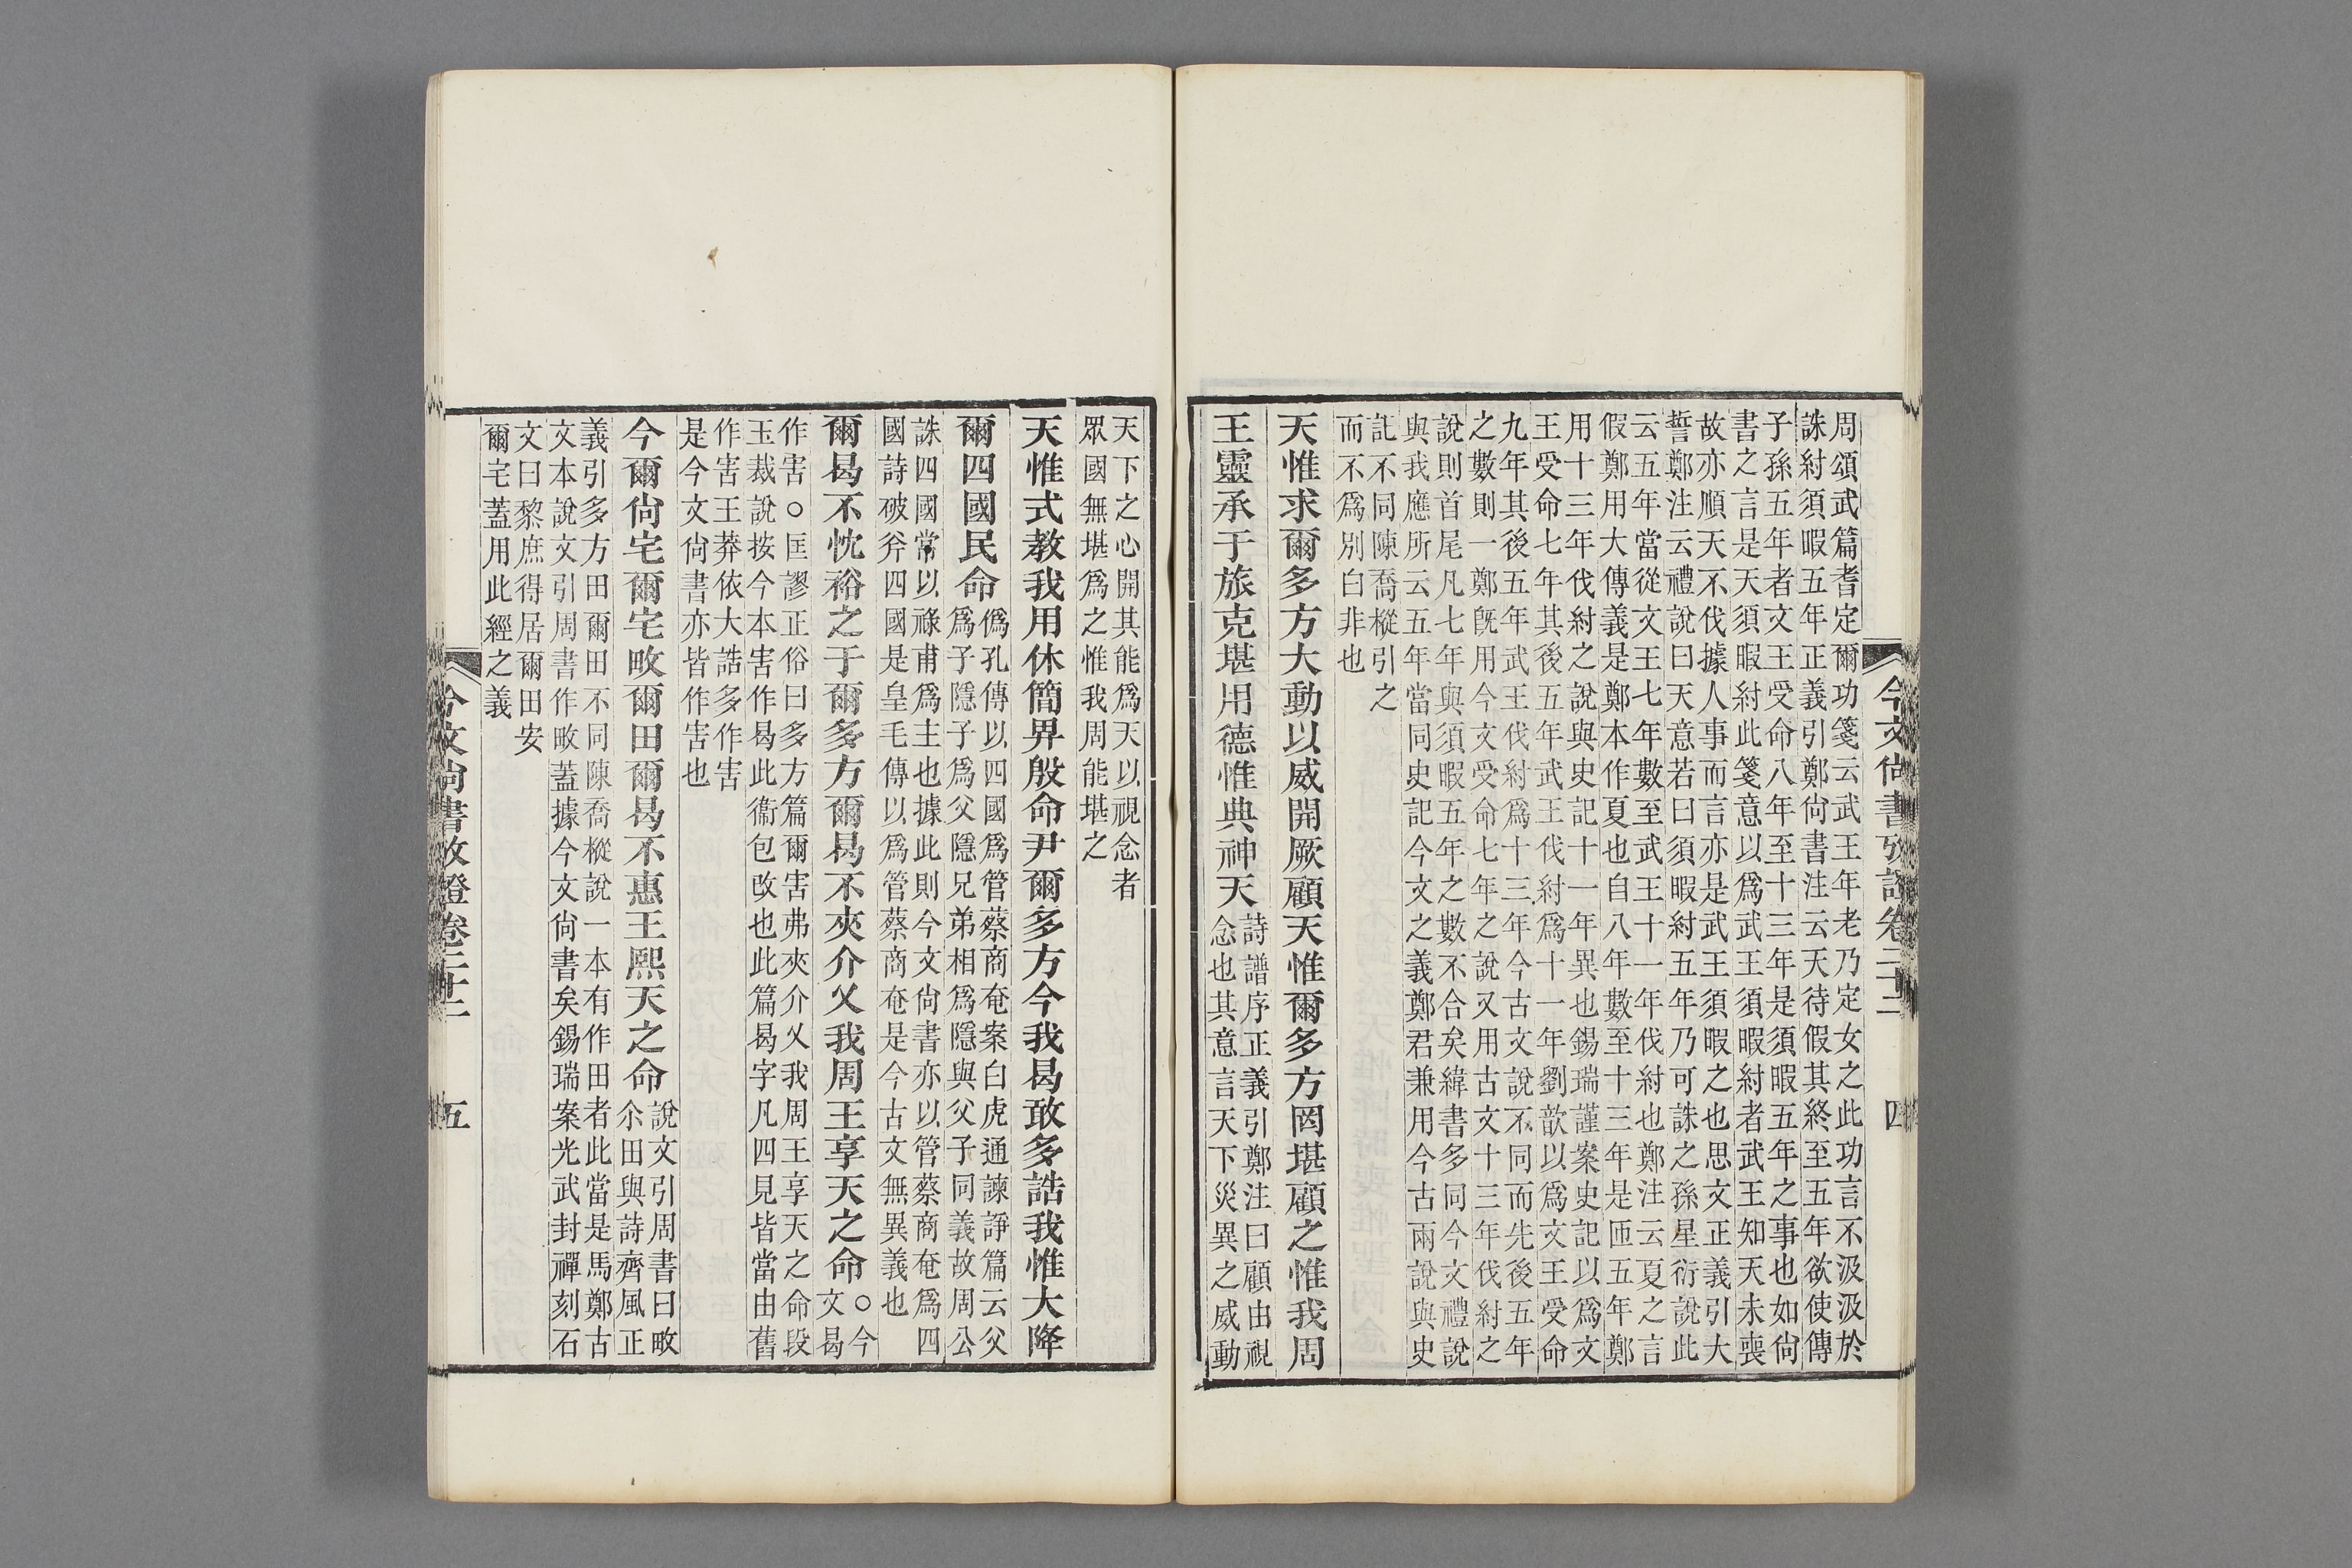 周頌武篇耆定爾功箋云武王年老乃定女之此功言不汲汲於
誅紂須暇五年正義引鄭尙書注云天待假其終至五年欲使傳
子孫五年者文王受命八年至十三年是須暇五年之事也如尙
書之言是天須暇紂此箋意以爲武王須暇紂者武王知天未喪
故亦順天不伐據人事而言亦是武王須暇之也思文正義引大
誓鄭注云禮說曰天意若曰須暇紂五年乃可誅之孫星衍說此
云五年當從文王七年數至武王十一年伐紂也鄭注云夏之言
假鄭用大傳義是鄭本作夏也自八年數至十三年是匝五年鄭
用十三年伐紂之說與史記十一年異也錫瑞謹案史記以爲文
王受命七年其後五年武王伐紂爲十一年劉歆以爲文王受命
九年其後五年武王伐紂爲十三年今古文說不同而先後五年
之數則一鄭旣用今文受命七年之說又用古文十三年伐紂之
說則首尾凡七年與須暇五年之數不合矣緯書多同今文禮說
與我應所云五年當同史記今文之義鄭君兼用今古兩說與史
記不同陳喬樅引之
而不爲別白非也
天惟求爾多方大動以威開厥顧天惟爾多方罔堪顧之惟我周
王靈承于旅克堪用德惟典神天
詩譜序正義引鄭注曰顧由視
念也其意言天下災異之威動
今文尙書攷證卷二十二
四
天下之心開其能爲天以視念者
眾國無堪爲之惟我周能堪之
天惟式教我用休簡畀殷命尹爾多方今我曷敢多誥我惟大降
爾四國民命
僞孔傳以四國爲管蔡商奄案白虎通諫諍篇云父
爲子隱子爲父隱兄弟相爲隱與父子同義故周公
誅四國常以祿甫爲主也據此則今文尙書亦以管蔡商奄爲四
國詩破斧四國是皇毛傳以爲管蔡商奄是今古文無異義也
爾曷不忱裕之于爾多方爾曷不夾介乂我周王享天之命
○今
文曷
作害○匡謬正俗曰多方篇爾害弗夾介乂我周王享天之命段
玉裁說按今本害作曷此衞包改也此篇曷字凡四見皆當由舊
作害王莽依大誥多作害
是今文尙書亦皆作害也
今爾尙宅爾宅畋爾田爾曷不惠王熙天之命
說文引周書曰畋
尒田與詩齊風正
義引多方田爾田不同陳喬樅說一本有作田者此當是馬鄭古
文本說文引周書作畋蓋據今文尙書矣錫瑞案光武封禪刻石
文曰黎庶得居爾田安
爾宅蓋用此經之義
今文尙書攷證卷二十二
五